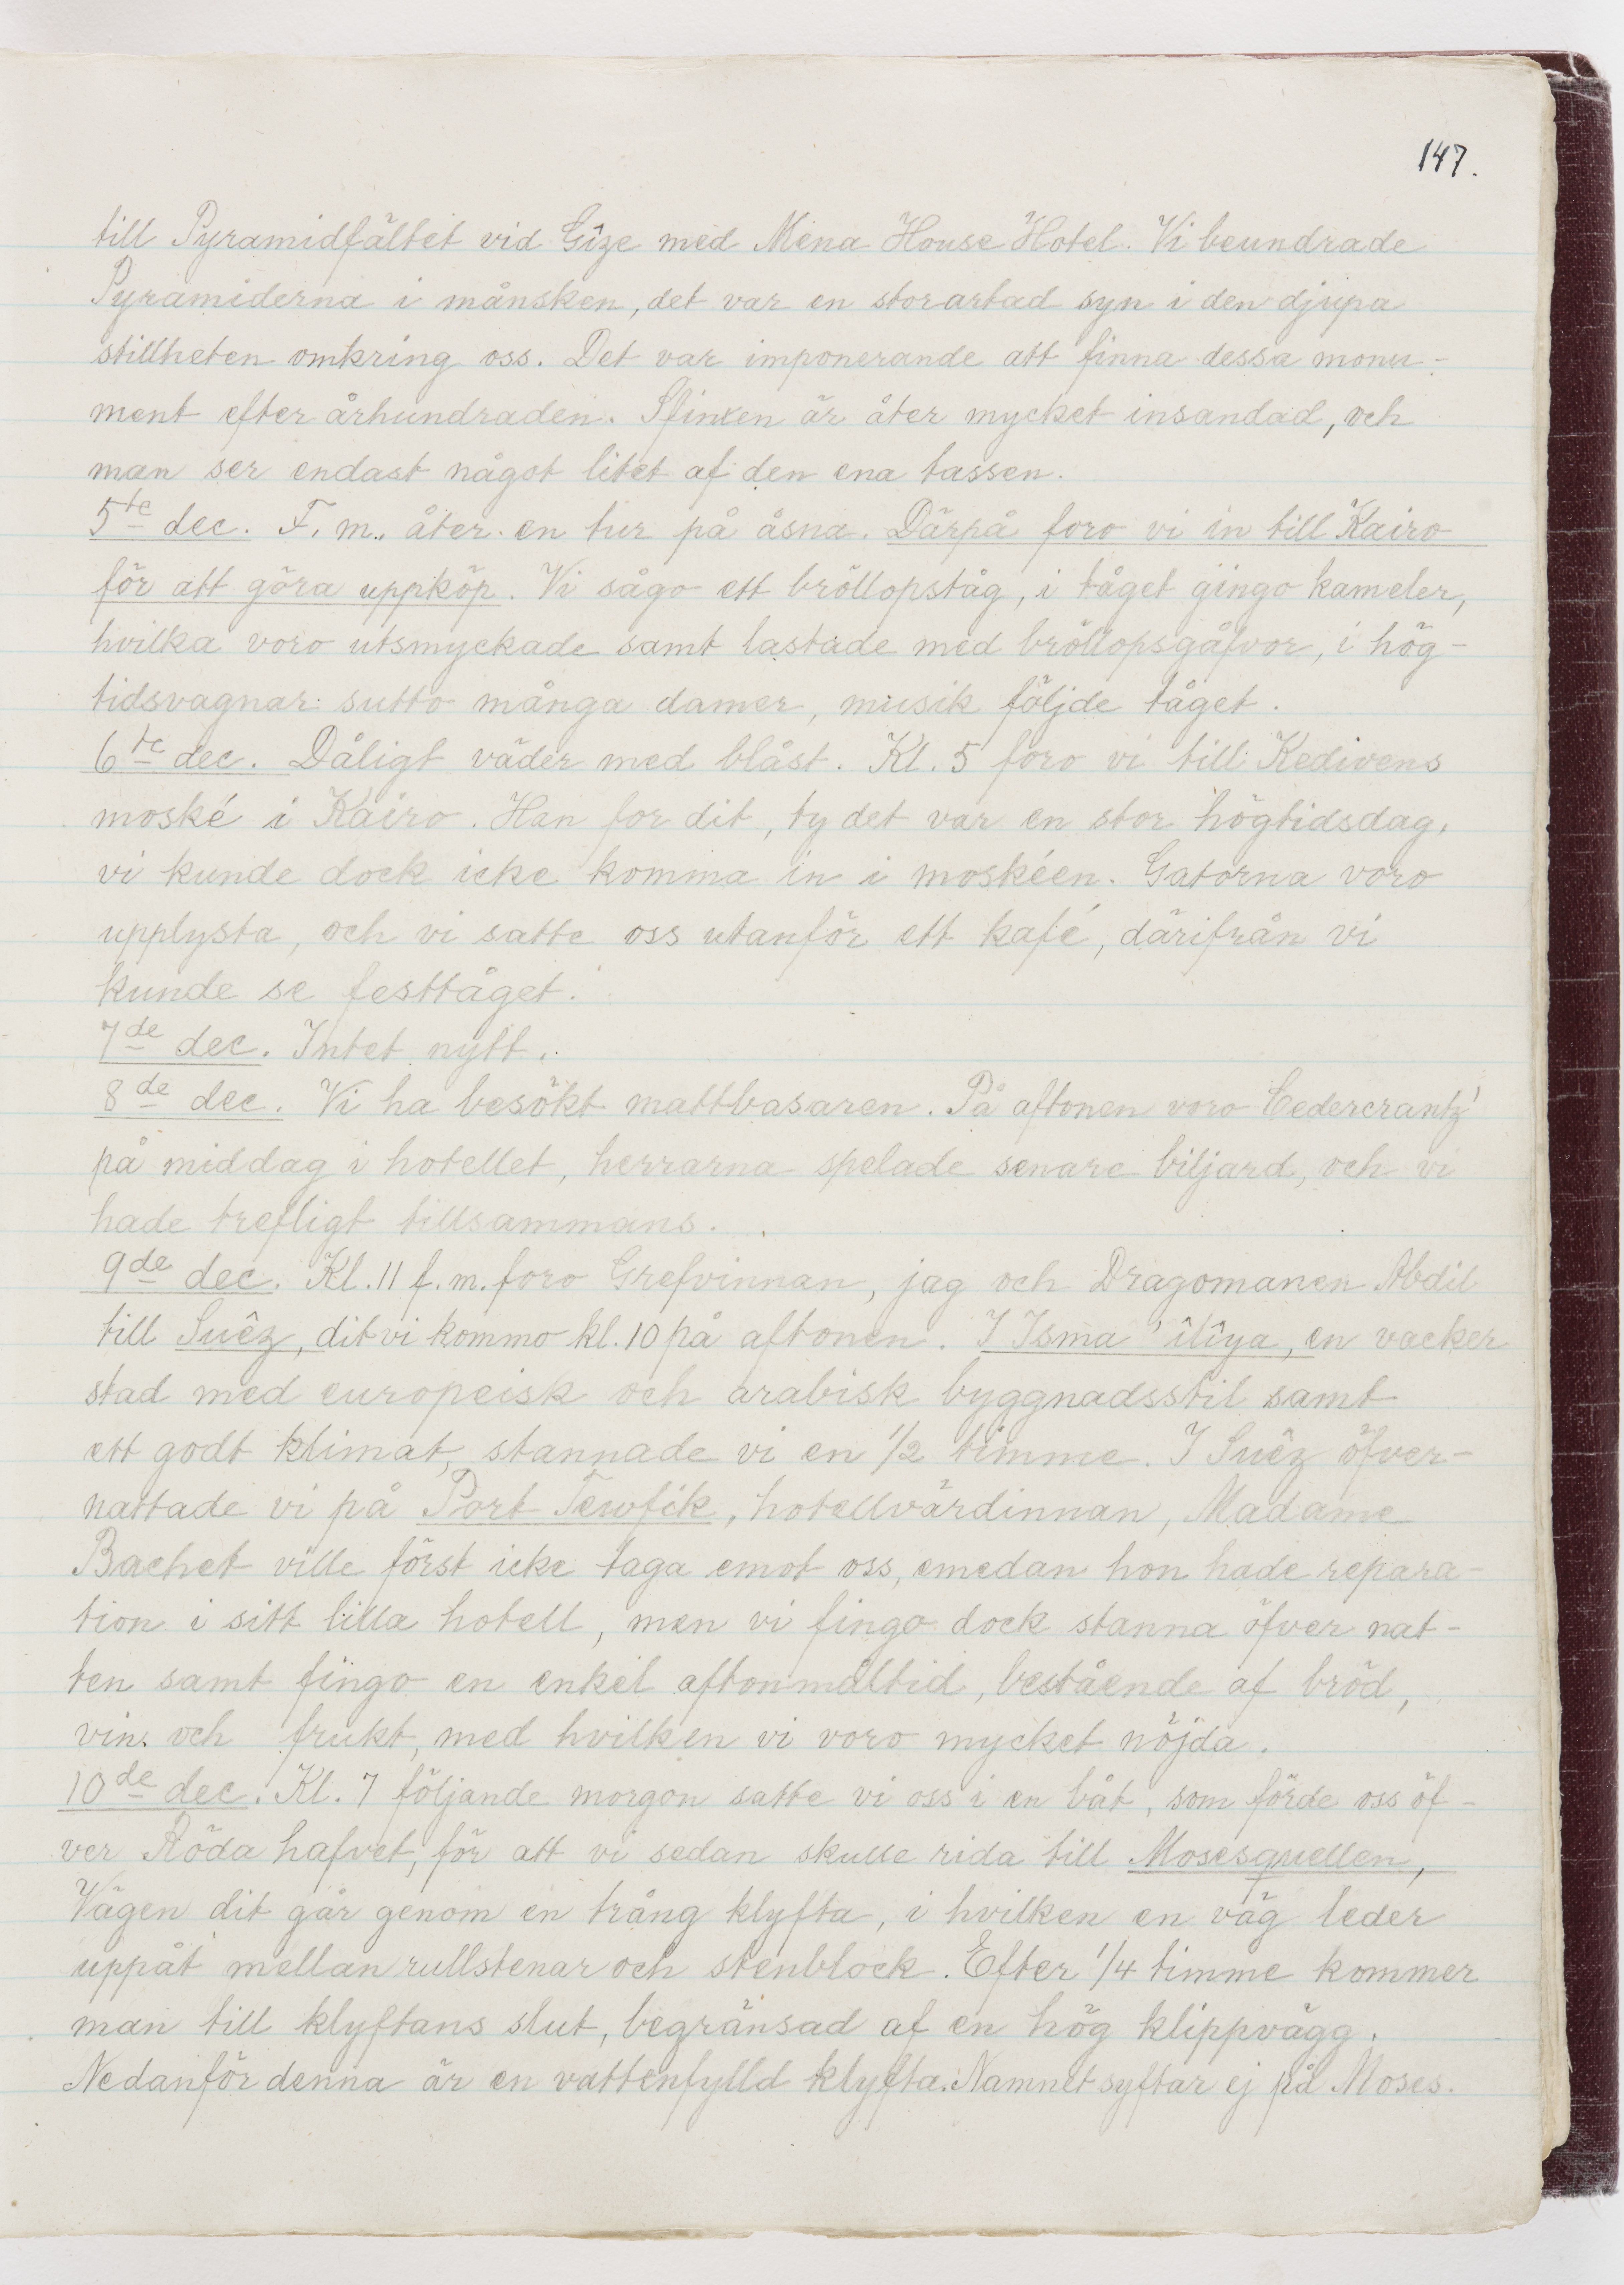 147.
till Pyramidfältet vid Gîze med Mena House Hotel. Vi beundrade
Pyramiderna i månsken, det var en storartad syn i den djupa
stillheten omkring oss. Det var imponerande att finna dessa monu-
ment efter århundraden. Sfinxen är åter mycket insandad, och
man ser endast något litet af den ena tassen.
5te dec. F. m. åter en tur på åsna. Därpå foro vi in till Kairo
för att göra uppköp. Vi sågo ett bröllopståg, i tåget gingo kameler,
hvilka voro utsmyckade samt lastade med bröllopsgåfvor, i hög-
tidsvagnar sutto många damer, musik följde tåget.
6te dec. Dåligt väder med blåst. Kl. 5 foro vi till Kedivens
moské i Kairo. Han for dit, ty det var en stor högtidsdag,
vi kunde dock icke komma in i moskéen. Gatorna voro
upplysta, och vi satte oss utanför ett kafé, därifrån vi
kunde se festtåget.
7de dec. Intet nytt.
8de dec. Vi ha besökt mattbasaren. På aftonen voro Cedercrantz'
på middag i hotellet, herrarna spelade senare biljard, och vi
hade trefligt tillsammans.
9de dec. Kl. 11 f. m. foro Grefvinnan, jag och Dragomanen Abdil
till Suêz, dit vi kommo kl. 10 på aftonen. I Isma'îlîya, en vacker
stad med europeisk och arabisk byggnadsstil samt
ett godt klimat, stannade vi en 1/2 timme. I Suêz öfver-
nattade vi på Port Tewfik, hotellvärdinnan, Madame
Bachet ville först icke taga emot oss, emedan hon hade repara-
tion i sitt lilla hotell, men vi fingo dock stanna öfver nat-
ten samt fingo en enkel aftonmåltid, bestående af bröd,
vin och frukt, med hvilken vi voro mycket nöjda.
10de dec. Kl. 7 följande morgon satte vi oss i en båt, som förde oss öf-
ver Röda hafvet, för att vi sedan skulle rida till Mosesquellen,
Vägen dit går genom en trång klyfta, i hvilken en väg leder
uppåt mellan rullstenar och stenblock. Efter 1/4 timme kommer
man till klyftans slut, begränsad af en hög klippvägg.
Nedanför denna är en vattenfylld klyfta. Namnet syftar ej på Moses.